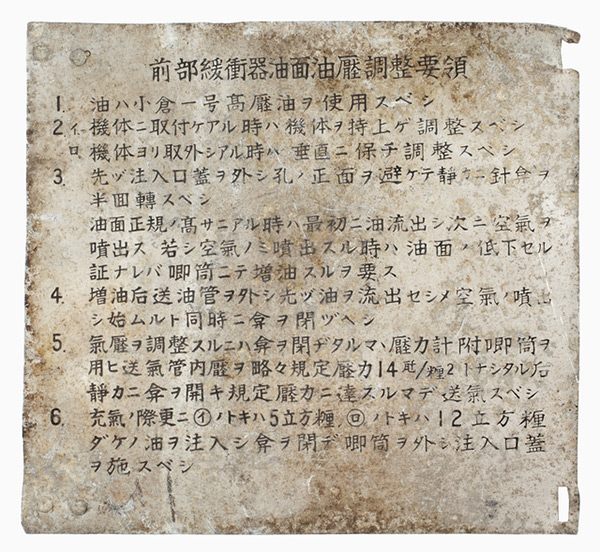 前部緩衝器油面油壓調整要領
1. 油ハ小倉一号髙壓油ヲ使用スベシ
2. イ. 機体ニ取付ケアル時ハ機体ヲ持上ゲ調整スベシ
ロ. 機体ヨリ取外シアル時ハ垂直ニ保チ調整スベシ
3. 先ヅ注入口蓋ヲ外シ孔ノ正面ヲ避ケテ靜カニ針弇ヲ
半回轉スベシ
油面正規ノ髙サニアル時ハ最初ニ油流出シ次ニ空氣ヲ
噴出ス 若シ空氣ノミ噴出スル時ハ油面ノ低下セル
証ナレバ喞筒ニテ増油スルヲ要ス
4. 増油后送油管ヲ外シ先ヅ油ヲ流出セシメ空氣ノ噴出
シ始ムルト同時ニ弇ヲ閉ヅベシ
5. 氣壓ヲ調整スルニハ弇ヲ閉ヂタルマハ壓力計附喞筒ヲ
用ヒ送氣管内壓ヲ略々規定壓力14瓩/糎2トナシタル后
靜カニ弇ヲ開キ規定壓力ニ達スルマデ送氣スベシ
6. 充氣ノ際更ニ㋑ノトキハ5立方糎,㋺ノトキハ12立方糎
ダケノ油ヲ注入シ弇ヲ閉デ喞筒ヲ外シ注入口蓋
ヲ施スベシ